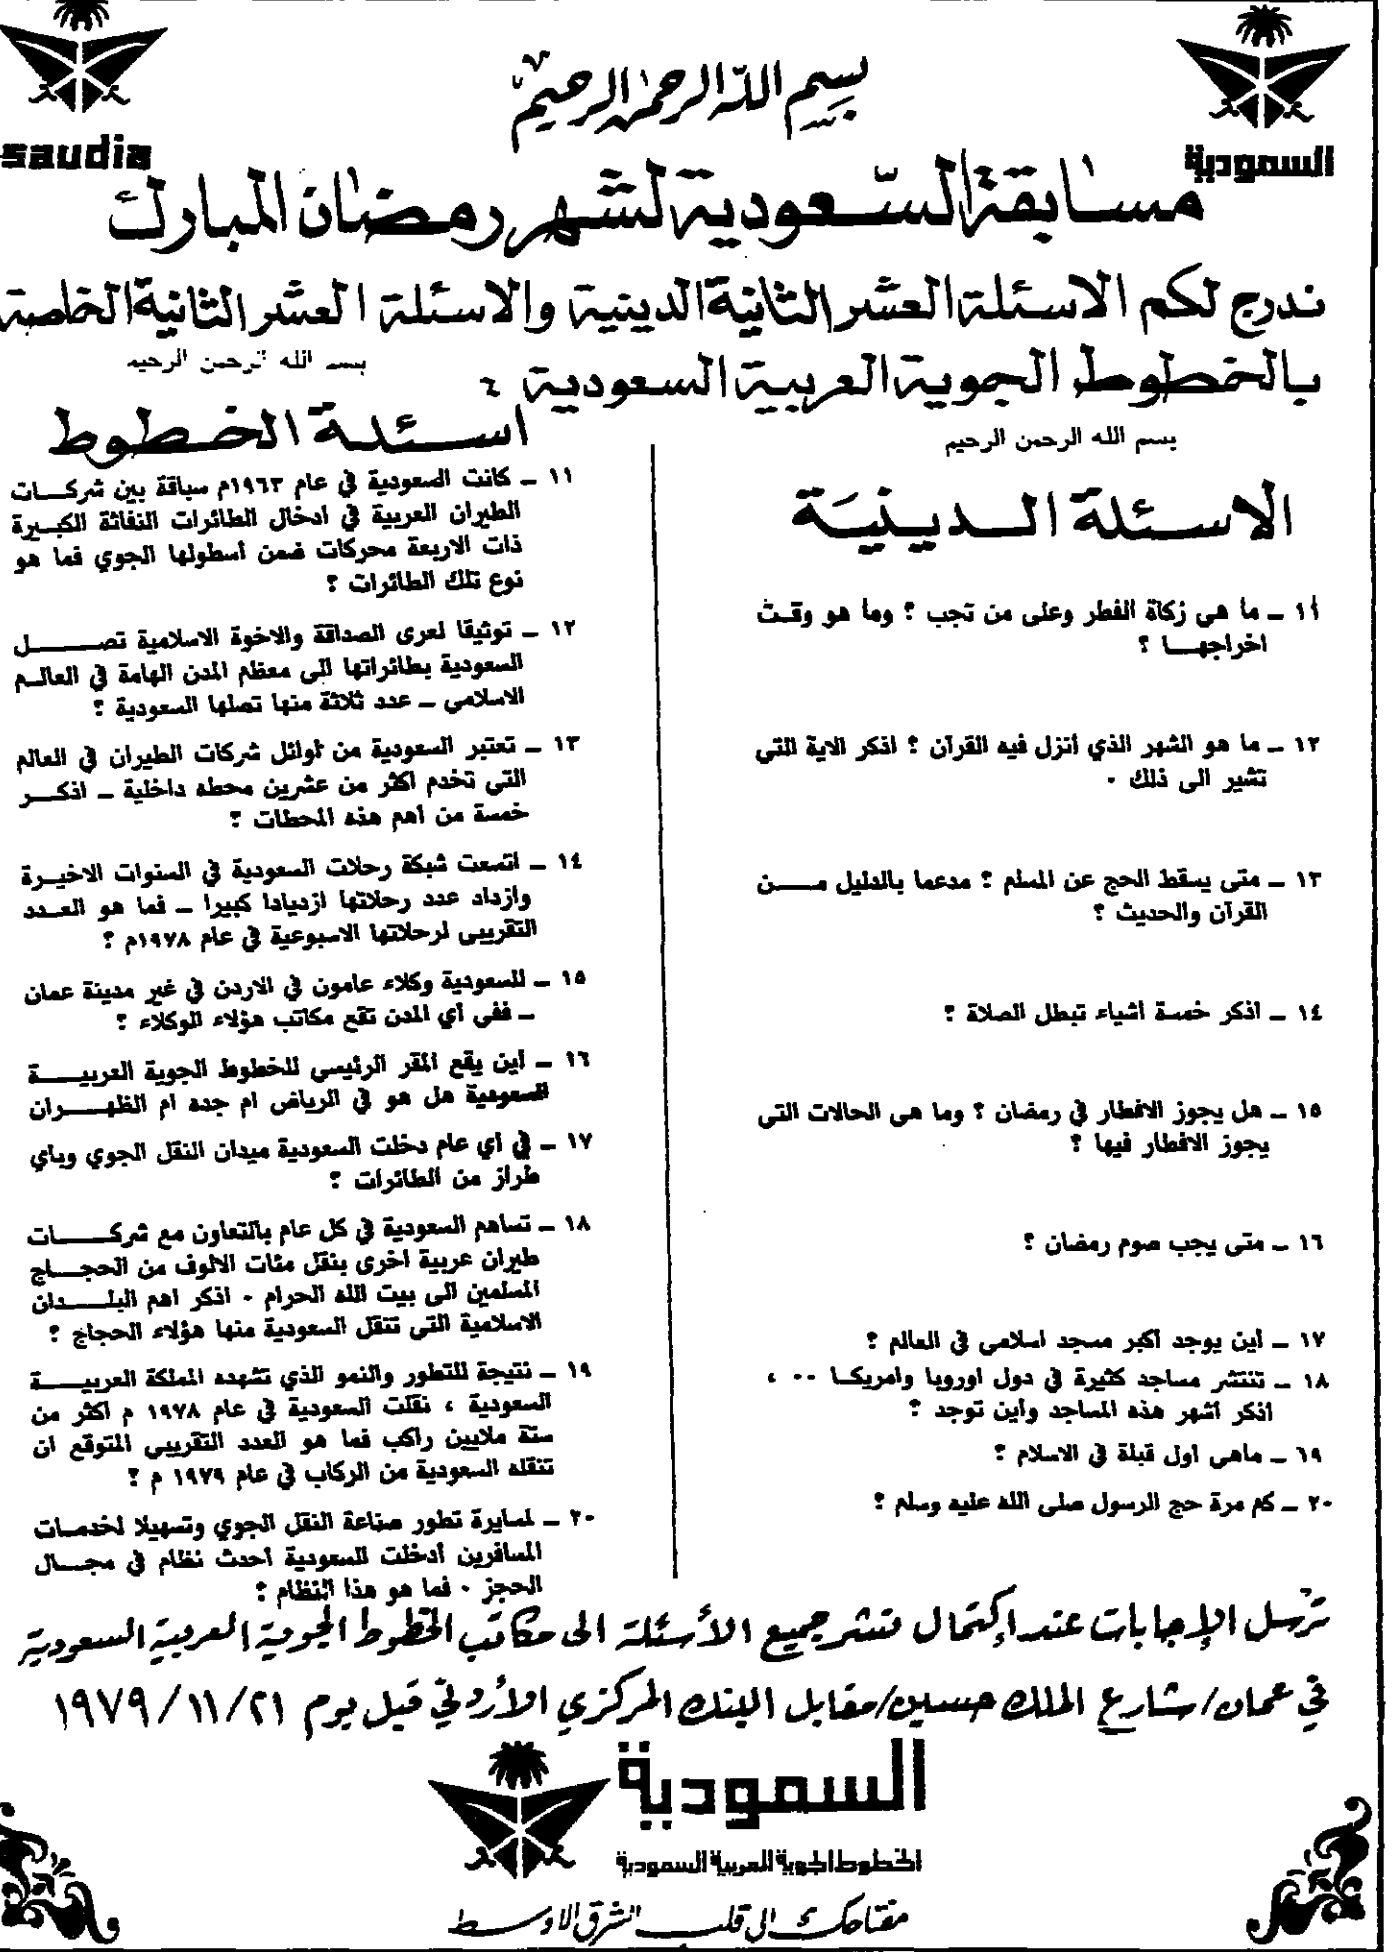 بسم الله الرحمن الرحيم
saudia
السعودية
مسابقة السعودية لشهر رمضان المبارك
ندرج لكم الاسئلة العشر الثانية الدينية والاسئلة العشر الثانية الخاصة
بالخطوط الجوية العربية السعودية
بسم الله الرحمن الرحيم
الاسئلة الدينية
١١ ــ ما هى زكاة الفطر وعلى من تجب ؟ وما هو وقت
اخراجها ؟
١٢ ــ ما هو الشهر الذي أنزل فيه القرآن ؟ اذكر الاية التى
تشير الى ذلك ٠
١٣ ــ متى يسقط الحج عن المسلم ؟ مدعما بالدليل من
القرآن والحديث ؟
١٤ ــ اذكر خمسة أشياء تبطل الصلاة ؟
١٥ ــ هل يجوز الافطار في رمضان ؟ وما هى الحالات التى
يجوز الافطار فيها ؟
١٦ ــ متى يجب صوم رمضان ؟
١٧ ــ أين يوجد أكبر مسجد اسلامى في العالم ؟
١٨ ــ تنتشر مساجد كثيرة في دول اوروبا وامريكا ٠٠ ،
أذكر أشهر هذه المساجد واين توجد ؟
١٩ ــ ماهى اول قبلة في الاسلام ؟
٢٠ ــ كم مرة حج الرسول صلى الله عليه وسلم ؟
بسم الله الرحمن الرحيم
اسئلة الخطوط
١١ ــ كانت السعودية في عام ١٩٦٣م سباقة بين شركات
الطيران العربية في ادخال الطائرات النفاثة الكبيرة
ذات الاربعة محركات ضمن أسطولها الجوي فما هو
نوع تلك الطائرات ؟
١٢ ــ توثيقا لعرى الصداقة والاخوة الاسلامية تصل
السعودية بطائراتها الى معظم المدن الهامة في العالم
الاسلامى ــ عدد ثلاثة منها تصلها السعودية ؟
١٣ ــ تعتبر السعودية من أوائل شركات الطيران في العالم
التى تخدم اكثر من عشرين محطه داخلية ــ اذكر
خمسة من أهم هذه المحطات ؟
١٤ ــ اتسعت شبكة رحلات السعودية في السنوات الاخيرة
وازداد عدد رحلاتها ازديادا كبيرا ــ فما هو العدد
التقريبى لرحلاتها الاسبوعية في عام ١٩٧٨م ؟
١٥ ــ للسعودية وكلاء عامون في الاردن في غير مدينة عمان
ــ ففى أي المدن تقع مكاتب هؤلاء الوكلاء ؟
١٦ ــ أين يقع المقر الرئيسي للخطوط الجوية العربية
السعودية هل هو في الرياض ام جده ام الظهران
١٧ ــ في أي عام دخلت السعودية ميدان النقل الجوي وباي
طراز من الطائرات ؟
١٨ ــ تساهم السعودية في كل عام بالتعاون مع شركات
طيران عربية اخرى بنقل مئات الالوف من الحجاج
المسلمين الى بيت الله الحرام ٠ اذكر اهم البلدان
الاسلامية التى تنقل السعودية منها هؤلاء الحجاج ؟
١٩ ــ نتيجة للتطور والنمو الذي تشهده المملكة العربية
السعودية ، نقلت السعودية في عام ١٩٧٨ م اكثر من
ستة ملايين راكب فما هو العدد التقريبي المتوقع ان
تنقله السعودية من الركاب في عام ١٩٧٩ م ؟
٢٠ ــ لمسايرة تطور صناعة النقل الجوي وتسهيلا لخدمات
المسافرين أدخلت السعودية أحدث نظام في مجال
الحجز ٠ فما هو هذا النظام ؟
ترسل الإجابات عند إكتمال نشر جميع الأسئلة الى مكاتب الخطوط الجوية العربية السعودية
في عمان/شارع الملك حسين/مقابل البنك المركزي الأردني قبل يوم ١٩٧٩/١١/٢١
السعودية
الخطوط الجوية العربية السعودية
مفتاحك الى قلب الشرق الاوسط